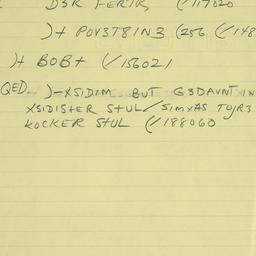 D3R FERIR, (/117020
)+ POV3T8IN3 (256 (/148
)+ BOB+ (/156021
QED. )-XSIDIM BUT G3DAVNT IN
XSIDISTER STUL/SIMXAS TOJR3
KOCKER STUL (/188060